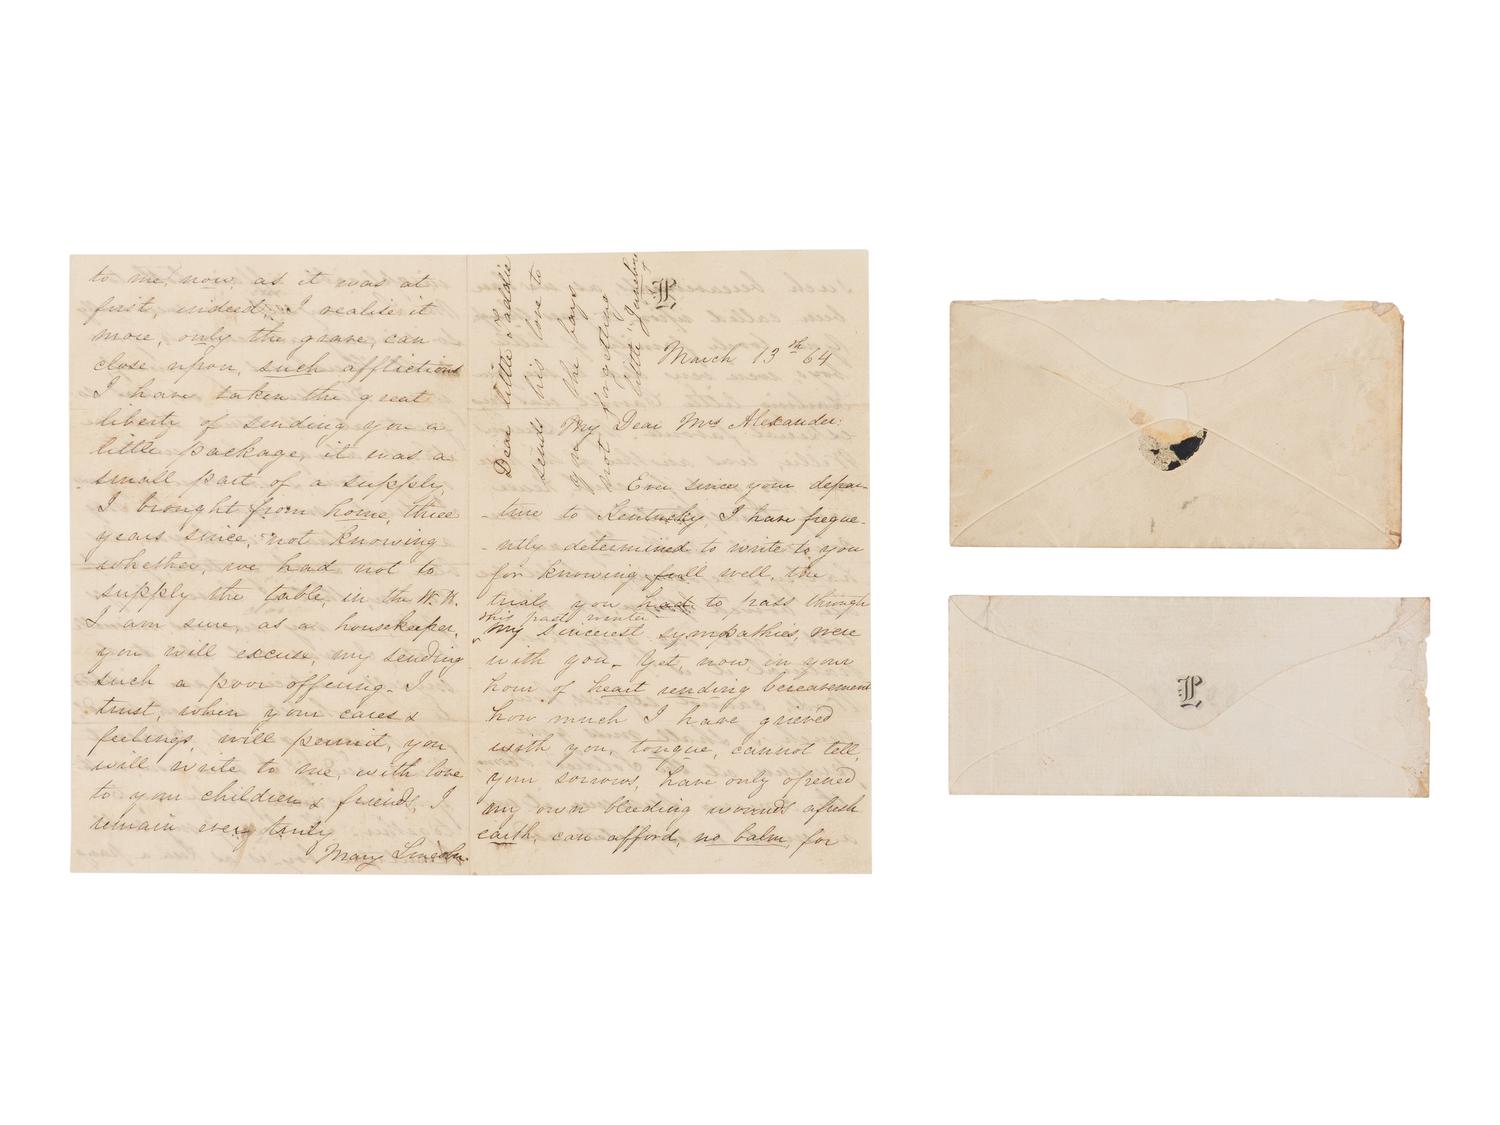 L
March 13th 64
My Dear Mrs Alexander:
Ever since your depar-
-ture to Kentucky, I have freque-
-ntly determined to write to you
for knowing full well, the
trials you had to pass through
this past winter
My sincerest sympathies, were
with you_ Yet, now in your
hour of heart rending bereavement
how much I have grieved
with you, tongue, cannot tell,
your sorrows, have only opened
my own bleeding wounds afresh
earth, can afford, no balm, for
to me, now, as it was at
first, indeed, I realise it
more, only the grave, can
close upon, such afflictions
I have taken the great
liberty of sending you a
little package, it was a
small part of a supply,
I brought from home, three
years since, not knowing
whether, we had not to
supply the table, in the W. H.
I am sure, as a housekeeper,
you will excuse, my sending
such a poor offering_ I
trust, when your cares &
feelings, will permit, you
will write to me, with love
to your children & friends, I
remain ever truly
Mary Lincoln.
Dear little Taddie
sends his love to
you & the boys
not forgetting
little
L